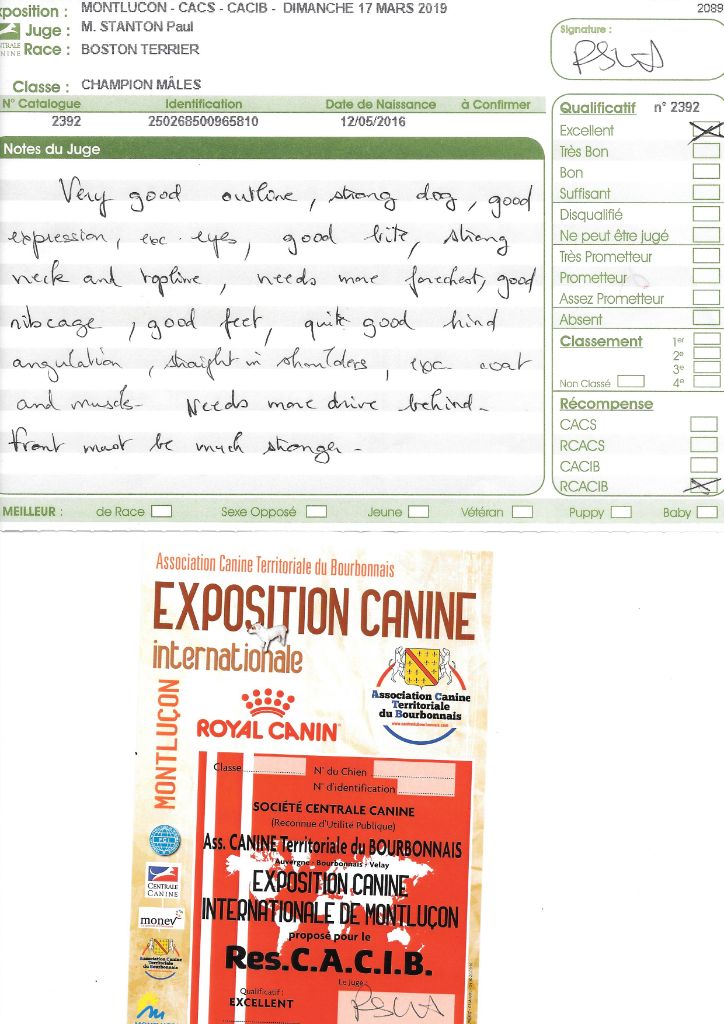 xposition : MONTLUCON - CACS - CACIB - DIMANCHE 17 MARS 2019
2089
Juge : M. STANTON Paul
Race : BOSTON TERRIER
Signature :
Classe : CHAMPION MÂLES
N° Catalogue Identification Date de Naissance à Confirmer
2392 250268500965810 12/05/2016
Notes du Juge
Very good outline, strong dog, good
expression, exc. eyes, good bite, strong
neck and topline, needs more forechest, good
ribcage, good feet, quite good hind
angulation, straight in shoulders, exc. coat
and muscle. Needs more drive behind.
Front must be much stronger.
Qualificatif n° 2392
Excellent
Très Bon
Bon
Suffisant
Disqualifié
Ne peut être jugé
Très Prometteur
Prometteur
Assez Prometteur
Absent
Classement 1er
2e
3e
Non Classé 4e
Récompense
CACS
RCACS
CACIB
RCACIB
MEILLEUR : de Race Sexe Opposé Jeune Vétéran Puppy Baby
Association Canine Territoriale du Bourbonnais
EXPOSITION CANINE
internationale
MONTLUÇON
Association Canine
Territoriale
du Bourbonnais
ROYAL CANIN
Classe N° du Chien
N° d'identification
SOCIÉTÉ CENTRALE CANINE
(Reconnue d'Utilité Publique)
Ass. CANINE Territoriale du BOURBONNAIS
Auvergne - Bourbonnais - Velay
EXPOSITION CANINE
INTERNATIONALE DE MONTLUÇON
proposé pour le
Res.C.A.C.I.B.
Le Juge :
Qualificatif :
EXCELLENT
FCI
CENTRALE
CANINE
Association Canine
Territoriale
du Bourbonnais